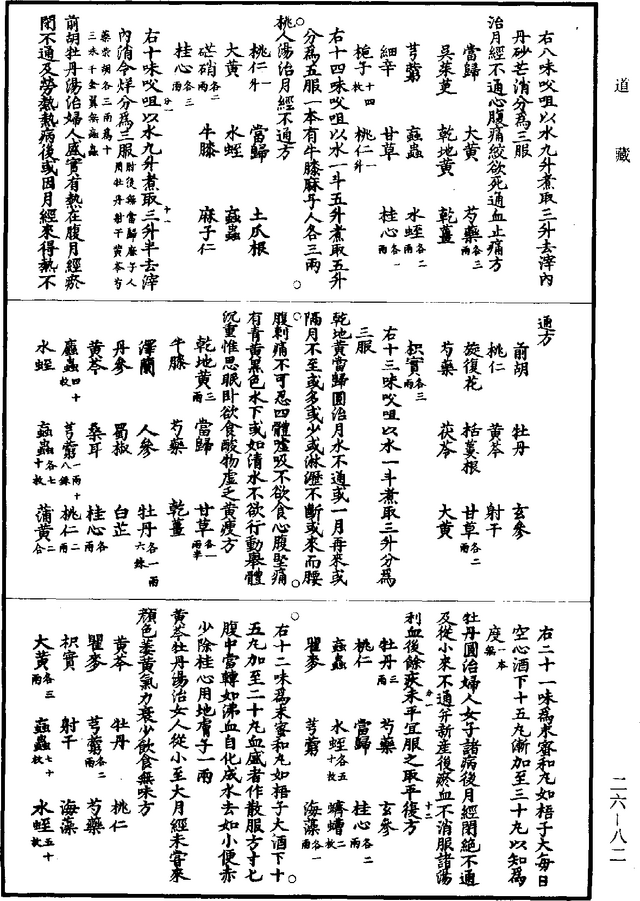 道藏
右八味㕮咀以水九升煮取三升去滓內
丹砂芒消分為三服
治月經不通心腹痛絞欲死通血止痛方
當歸 大黃 芍藥各三兩
吳茱萸 乾地黃 乾薑
芎藭 䖟蟲 水蛭各二兩
細辛 甘草 桂心各一兩
梔子十四枚 桃仁一升
右十四味㕮咀以水一斗五升煮取五升
分為五服一本有牛膝麻子人各三兩
桃人湯治月經不通方
桃仁一升 當歸 土瓜根
大黃 水蛭 䖟蟲
芒硝各二兩 牛膝 麻子仁
桂心各三兩
右十味㕮咀以水九升煮取三升半去滓
內消令烊分為三服
前胡牡丹湯治婦人盛實有熱在腹月經瘀
閉不通及勞熱熱病後或因月經來得熱不
通方
前胡 牡丹 玄參
桃仁 黃芩 射干
旋復花 栝蔞根 甘草各二兩
芍藥 茯苓 大黃
枳實各三兩
右十三味㕮咀以水一斗煮取三升分為
三服
乾地黃當歸圓治月水不通或一月再來或
隔月不至或多或少或淋瀝不斷或來而腰
腹刺痛不可忍四體噓吸不欲食心腹堅痛
有青黃黑色水下或如清水不欲行動舉體
沉重惟思眠卧欲食酸物虛乏黃瘦方
乾地黃三兩 當歸 甘草各一兩半
牛膝 芍藥 乾薑
澤蘭 人參 牡丹各一兩六銖
丹參 蜀椒 白芷
黃芩 桑耳 桂心各一兩
䗪蟲四十枚 芎藭一兩十八銖 桃仁二兩
水蛭 䖟蟲各七十枚 蒲黃二合
右二十一味為末蜜和丸如梧子大每日
空心酒下十五丸漸加至三十丸以知為
度一本無
牡丹圓治婦人女子諸病後月經閉絕不通
及從小來不通并新產後瘀血不消服諸湯
利血後餘疾未平宜服之取平復方
牡丹三兩 芍藥 玄參
桃仁 當歸 桂心各二兩
䖟蟲 水蛭各五十枚 蠐螬二十枚
瞿麥 芎藭 海藻各一兩
右十二味為末蜜和丸如梧子大酒下十
五丸加至二十丸血盛者作散服方寸七
腹中當轉如沸血自化成水去如小便赤
少除桂心用地膚子一兩
黃芩牡丹湯治女人從小至大月經未嘗來
顏色萎黃氣力衰少飲食無味方
黃芩 牡丹 桃仁
瞿麥 芎藭各二兩 芍藥
枳實 射干 海藻
大黃各三兩 䖟蟲七十枚 水蛭五十枚
二六—八二